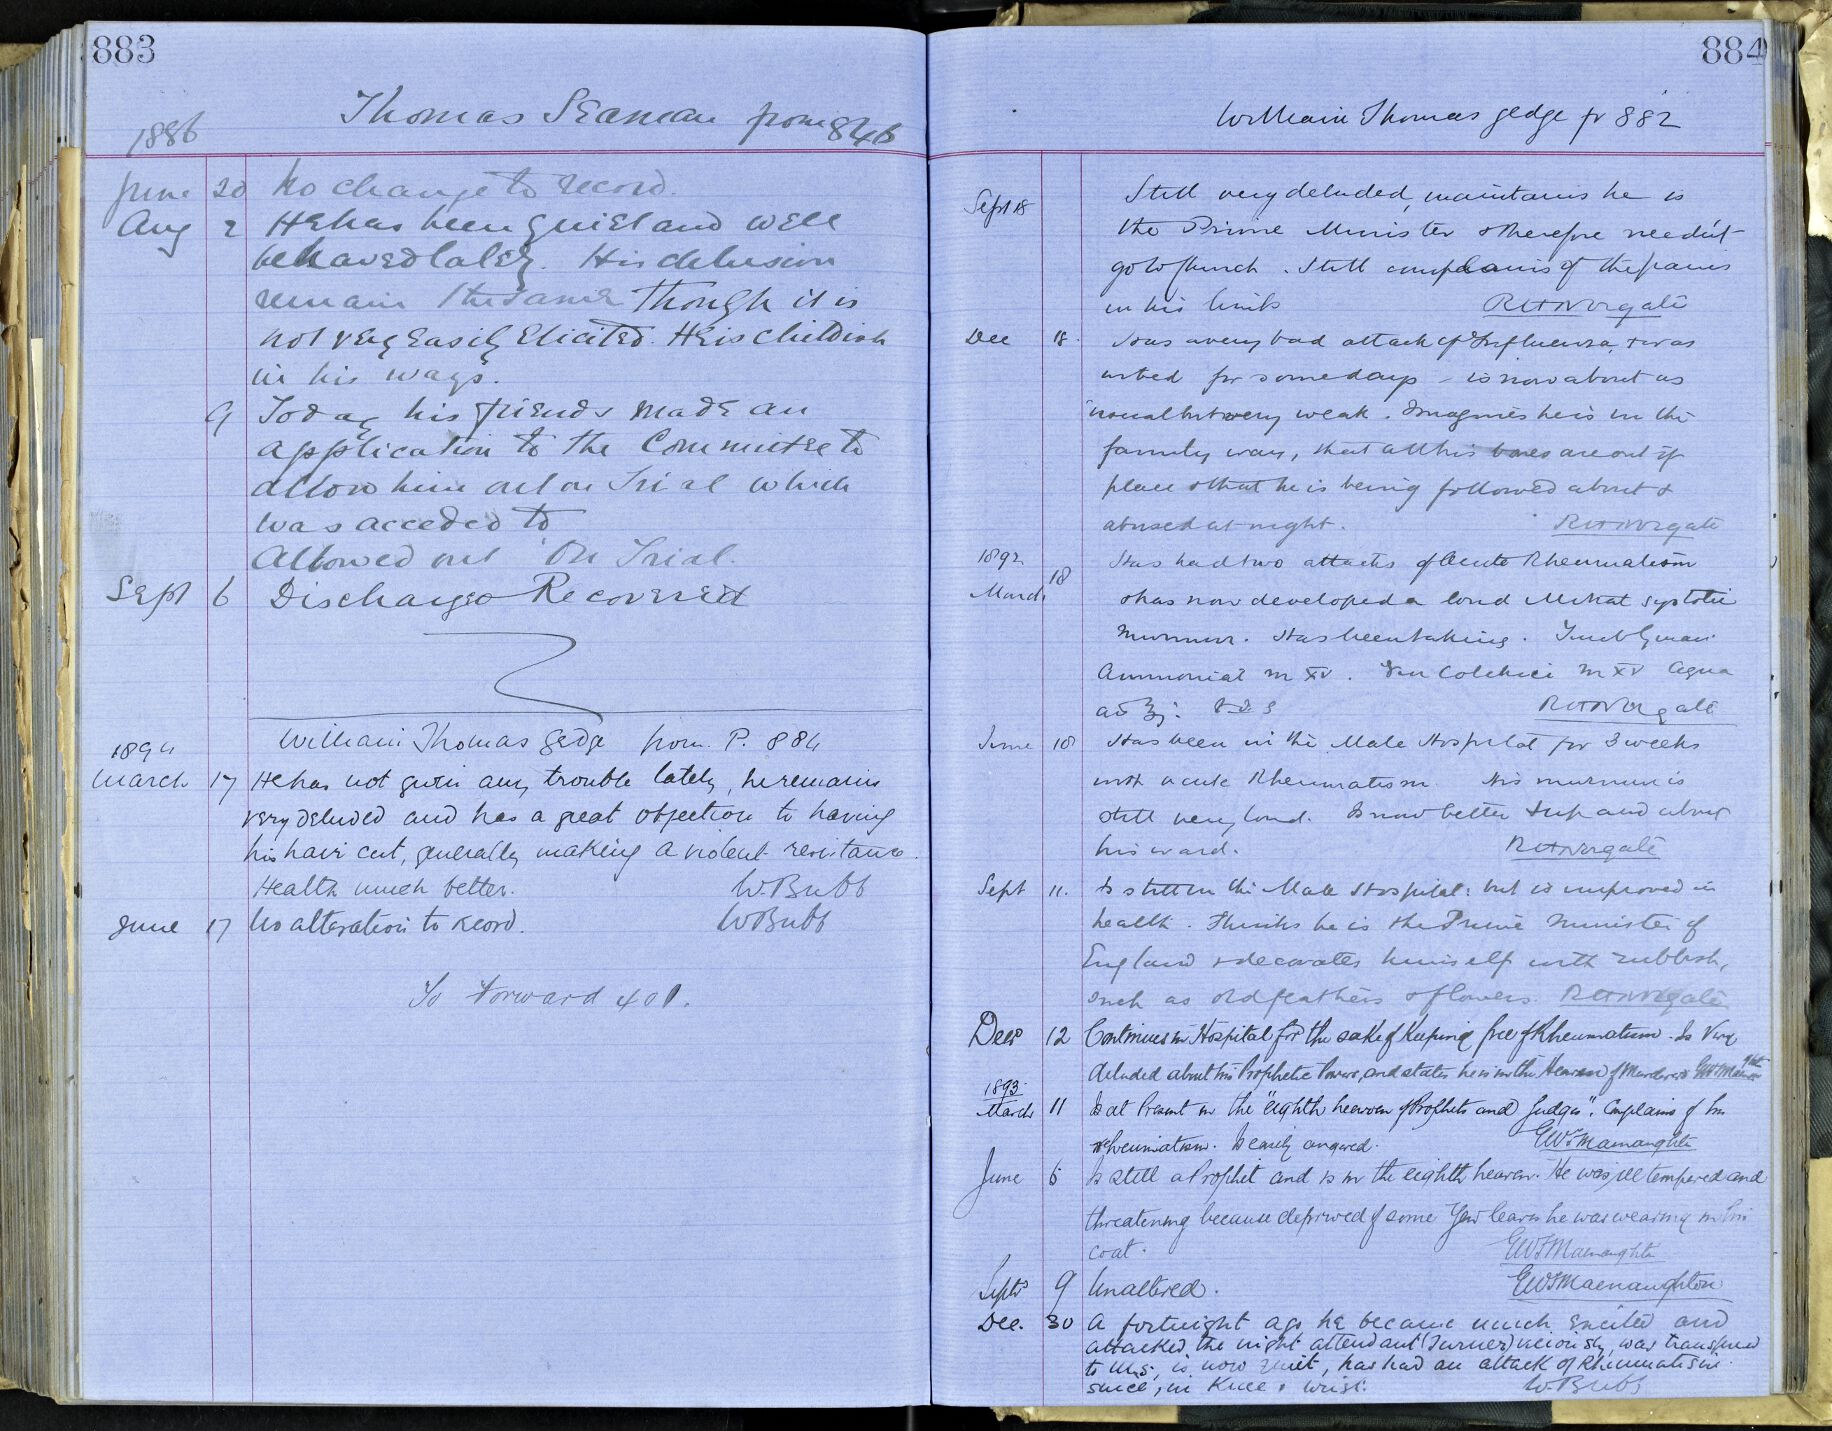 883
Thomas Seaman from 846
1886
June 20 No change to record.
Aug 2 He has been quiet and well
behaved lately. His delusion
remain the same though it is
not very easily elicited. He is childish
in his ways.
9 Today his friends made an
application to the Committee to
allow him out on Trial which
was acceded to
Allowed out On Trial.
Sept 6 Discharged Recovered
William Thomas Gedge from P. 884
1894
March 17 He has not given any trouble lately, he remains
very deluded and has a great objection to having
his hair cut, generally making a violent resistance.
Health much better. W. Bubb
June 17 No alteration to record. W Bubb
To Forward 401.
884
William Thomas Gedge fr 882
Sept 18 Still very deluded, maintains he is
the Prime Minister & therefore needn't
go to Church. Still complains of the pains
in his limbs
Dec 18. Has a very bad attack of Influenza, & was
in bed for some days - is now about as
usual but very weak. Imagines he is in the
family way, that all his bones are out of
place & that he is being followed about &
abused at night.
1892
March 18 Has had two attacks of Acute Rheumatism
& has now developed a loud Mitral systolic
murmur. Has been taking. Guaiaci
Ammoniat m xv. Vin Colchici m xv Aqua
ad ℥j. t.d.s
June 18 Has been in the Male Hospital for 3 weeks
with acute Rheumatism. His murmur is
still very loud. Is now better & up and about
his ward.
Sept 11. Is still in the Male Hospital: but is improved in
health. Thinks he is the Prime Minister of
England & decorates himself with rubbish,
such as old feathers & flowers.
Decr 12 Continues in Hospital for the sake of keeping free of Rheumatism. Is Very
deluded about his Prophetic Powers, and states he is in the Heaven of Murderers
1893
March 11 Is at Present in the "eighth heaven of Prophets and Judges". Complains of his
rheumatism. Is easily angered. EWS Macnaughton
June 6 Is still a Prophet and is in the eighth heaven. He was ill tempered and
threatening because deprived of some Yew leaves he was wearing in his
coat. EWS Macnaughton
Septr 9 Unaltered. EWS Macnaughton
Dec. 30 A fortnight ago he became much excited and
attacked the night attendant (Turner) viciously, was transferred
to M5; is now quiet, has had an attack of Rheumatism
since, in Knee & wrist. W. Bubb